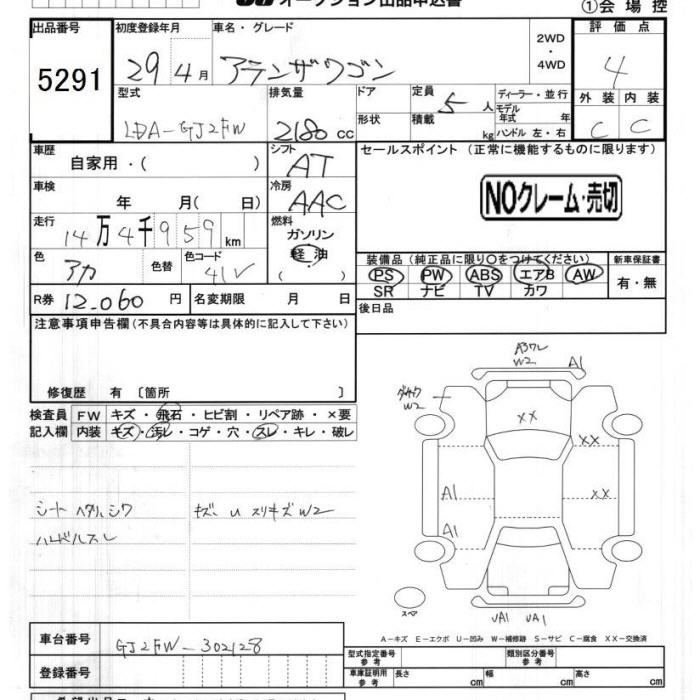 オークション出品申込書
①会場控
出品番号 初度登録年月 車名・グレード 2WD・4WD 評価点
5291 29年4月 アテンザワゴン 4
型式 排気量 ドア 定員 5人 ディーラー・並行 外装 内装
LDA-GJ2FW 2180cc 形状 積載 kg モデル年式 年 ハンドル 左・右 C C
車歴 自家用・( ) シフト AT セールスポイント (正常に機能するものに限ります)
車検 年 月( 日) 冷房 AAC NOクレーム・売切
走行 14万4千959km 燃料 ガソリン 軽油 ( )
色 アカ 色替 色コード 41V 装備品(純正品に限り〇をつけてください) 新車保証書
PS PW ABS エアB AW 有・無
SR ナビ TV カワ
R券 12.060円 名変期限 月 日 後日品
注意事項申告欄(不具合内容等は具体的に記入して下さい)
修復歴 有 〔箇所 〕
検査員 FW キズ・飛石・ヒビ割・リペア跡・×要
記入欄 内装 キズ・汚レ・コゲ・穴・スレ・キレ・破レ
シート ヘタリ、シワ キズ、U スリキズW2
ハンドルスレ
W2 A1
W2
XX
XX
A1 XX
A1
スペア
UA1 UA1
A-キズ E-エクボ U-凹み W-補修跡 S-サビ C-腐食 XX-交換済
車台番号 GJ2FW-302128
型式指定番号 参考 類別区分番号 参考
登録番号 車庫証明用 参考 長さ cm 幅 cm 高さ cm